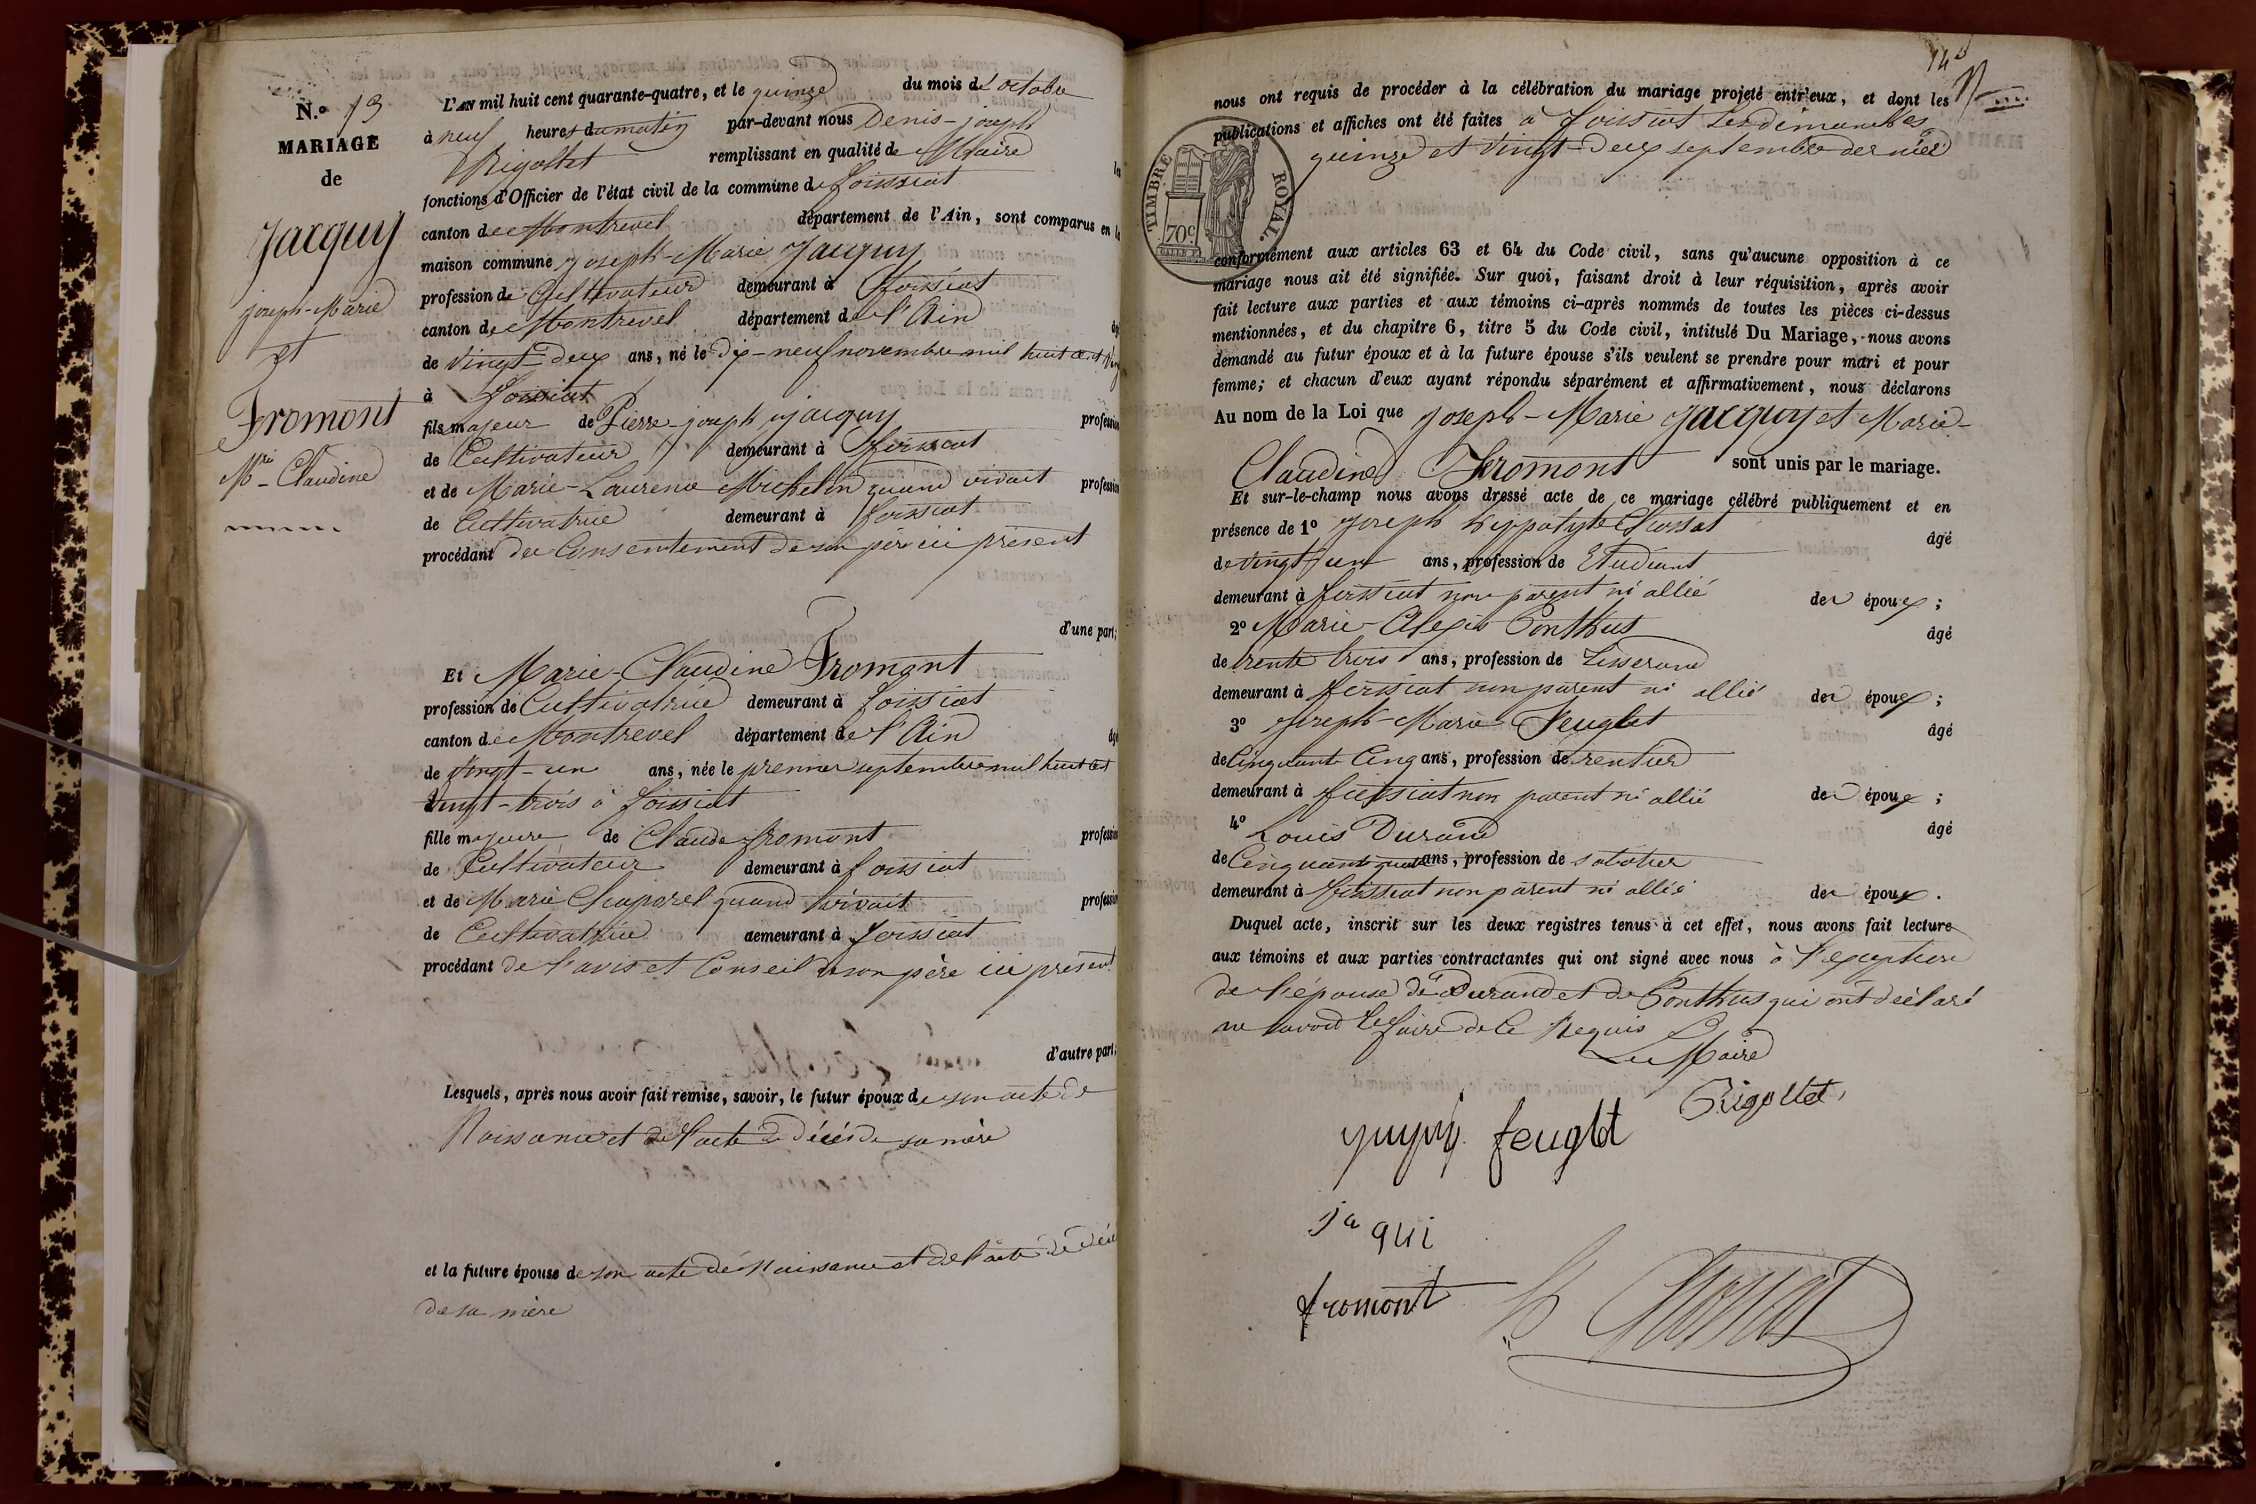 N.o 13
MARIAGE
de
Jacquy
joseph-Marie
et
Fromont
Mie Claudine
L'AN mil huit cent quarante-quatre, et le quinze du mois d'octobre
à neuf heures du matin par-devant nous Denis-joseph
Rigollet remplissant en qualité de Maire les
fonctions d'Officier de l'état civil de la commune de foissiat
canton de Montrevel département de l'Ain, sont comparus en la
maison commune joseph-Marie Jacquy
profession de Cultivateur demeurant à foissiat
canton de Montrevel département de l'Ain âgé
de Vingt-deux ans, né le dix-neuf novembre mil huit cent
à foissiat
fils majeur de Pierre joseph jacquy profession
de Cultivateur demeurant à foissiat
et de Marie-Laurence Michelon quand vivait profession
de Cultivatrice demeurant à foissiat
procédant du Consentement de son père ici présent
d'une part;
Et Marie-Claudine Fromont
profession de Cultivatrice demeurant à foissiat
canton de Montrevel département de l'Ain âgé
de Vingt-un ans, née le premier septembre mil huit cent
Vingt-trois à foissiat
fille majeure de Claude fromont profession
de Cultivateur demeurant à foissiat
et de Marie Chaparel quand vivait profession
de Cultivatrice demeurant à foissiat
procédant de l'avis et Conseil de son père ici présent
d'autre part;
Lesquels, après nous avoir fait remise, savoir, le futur époux de son acte de
Naissance et de l'acte de décès de sa mère
et la future épouse de son acte de Naissance et de l'acte de décès
de sa mère
14
nous ont requis de procéder à la célébration du mariage projeté entr'eux, et dont les
publications et affiches ont été faites à foissiat Les dimanches
quinze et Vingt-deux septembre dernier
TIMBRE ROYAL.
70c
conformément aux articles 63 et 64 du Code civil, sans qu'aucune opposition à ce
mariage nous ait été signifiée. Sur quoi, faisant droit à leur réquisition, après avoir
fait lecture aux parties et aux témoins ci-après nommés de toutes les pièces ci-dessus
mentionnées, et du chapitre 6, titre 5 du Code civil, intitulé Du Mariage, nous avons
demandé au futur époux et à la future épouse s'ils veulent se prendre pour mari et pour
femme; et chacun d'eux ayant répondu séparément et affirmativement, nous déclarons
Au nom de la Loi que joseph-Marie jacquy et Marie-
Claudine Fromont sont unis par le mariage.
Et sur-le-champ nous avons dressé acte de ce mariage célébré publiquement et en
présence de 1o joseph hyppolyte Chossat âgé
de vingt un ans, profession de Etudiant
demeurant à foissiat non parent ni allié des époux;
2o Marie-Alexis Ponthus âgé
de trente trois ans, profession de tisserand
demeurant à foissiat non parent ni allié des époux;
3o joseph-Marie Feuglet âgé
de Cinquante Cinq ans, profession de rentier
demeurant à foissiat non parent ni allié des époux;
4o Louis Durand âgé
de Cinquante quatre ans, profession de sabotier
demeurant à foissiat non parent ni allié des époux.
Duquel acte, inscrit sur les deux registres tenus à cet effet, nous avons fait lecture
aux témoins et aux parties contractantes qui ont signé avec nous à l'exception
de l'épouse de Durand et de Ponthus qui ont déclaré
ne savoir le faire de ce Requis
Le Maire
Rigollet
feuglet
ja qui
fromont
h Chossat